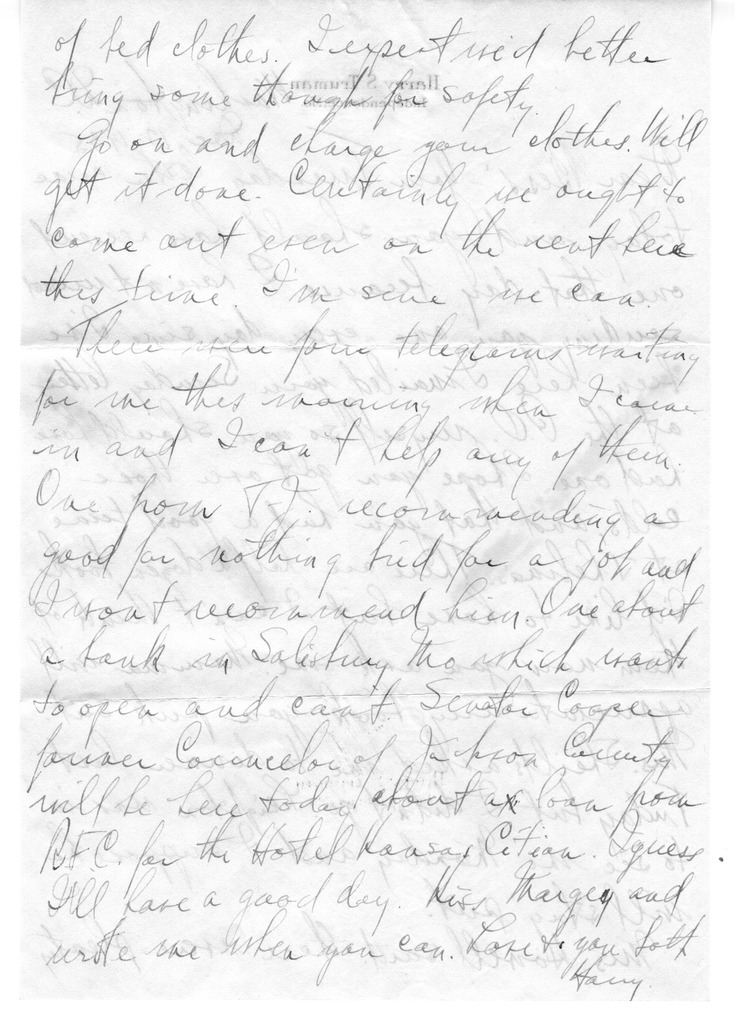 of bed clothes. I expect we'd better
bring some though for safety.
Go on and charge your clothes. Will
get it done. Certainly we ought to
come out even on the rent here
this time. I'm sure we can.
There were four telegrams waiting
for me this morning when I came
in and I can't help any of them.
One from T.J. recommending a
good for nothing bird for a job and
I won't recommend him. One about
a bank in Salisbury Mo which wants
to open and can't Senator Cooper
former Councelor of Jackson County
will be here today about a loan from
R.F.C. for the Hotel Kansas Citian. I guess
I'll have a good day. Kiss Margey and
write me when you can. Love to you both
Harry.
Harry S. Truman